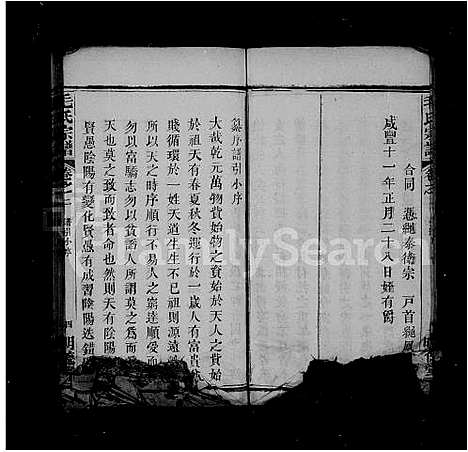 合同 憑 繩泰衛宗 戸首
咸豐十一年正月二十八日 有爵
纂序譜引小序
大哉乾元萬物資始物之資始於天人之資始
於祖天有春夏秋冬運行於一歲人有富貴
賤循環於一姓天道生生不已祖則源遠
所以天之時序順行不易人之窮達順受而
勿以富驕志勿以貧諂人所謂莫之爲而
天也莫之致而致者命也然則天有陰陽
賢愚陰陽有變化賢愚有成習陰陽迭錯
毛氏宗譜
四
FamilySearch